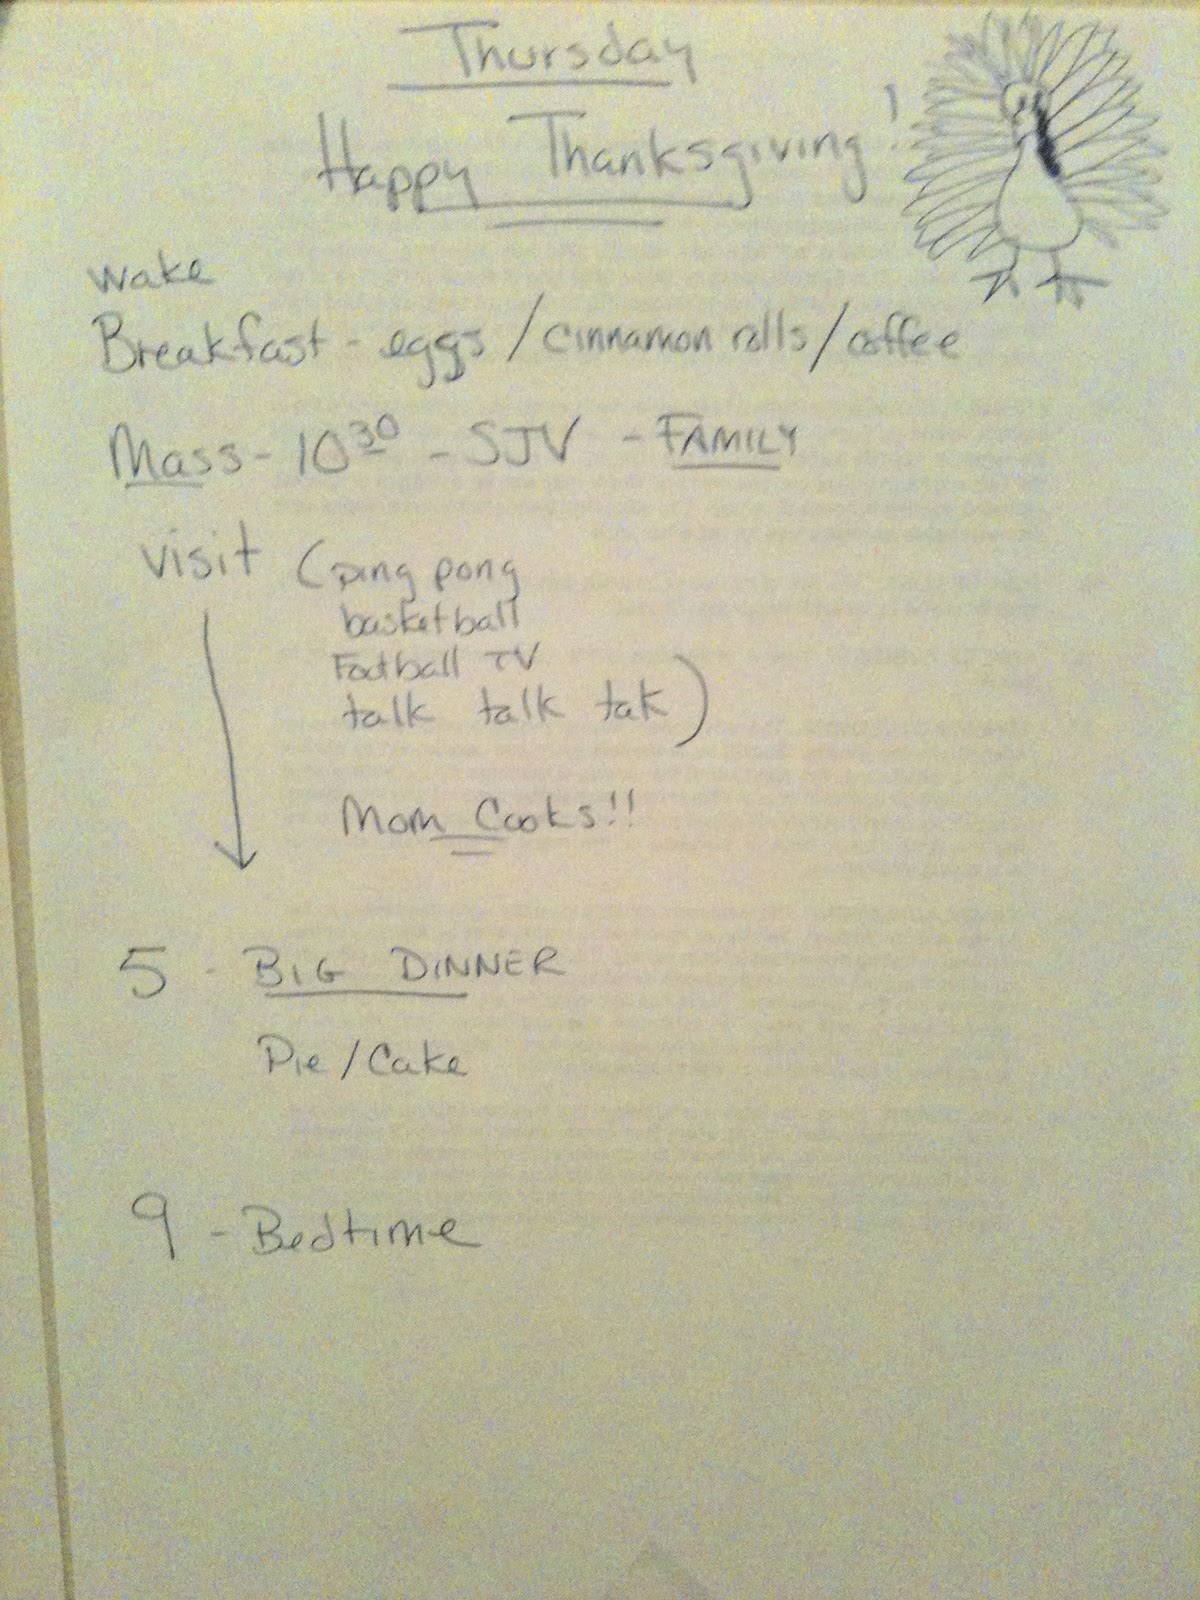 Thursday
Happy Thanksgiving!
wake
Breakfast - eggs / cinnamon rolls / coffee
Mass - 10 30 - SJV - FAMILY
visit (ping pong
basketball
Football TV
talk talk tak)
Mom Cooks!!
5 - BIG DINNER
Pie / Cake
9 - Bedtime